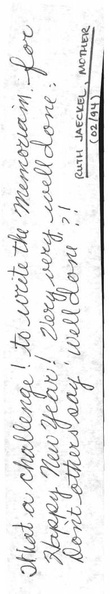 What a challenge! to write the Memoriam, for
Happy New Year! Very very well done.
Don't others say "well done"?!
RUTH JAECKEL, MOTHER
(02/94)